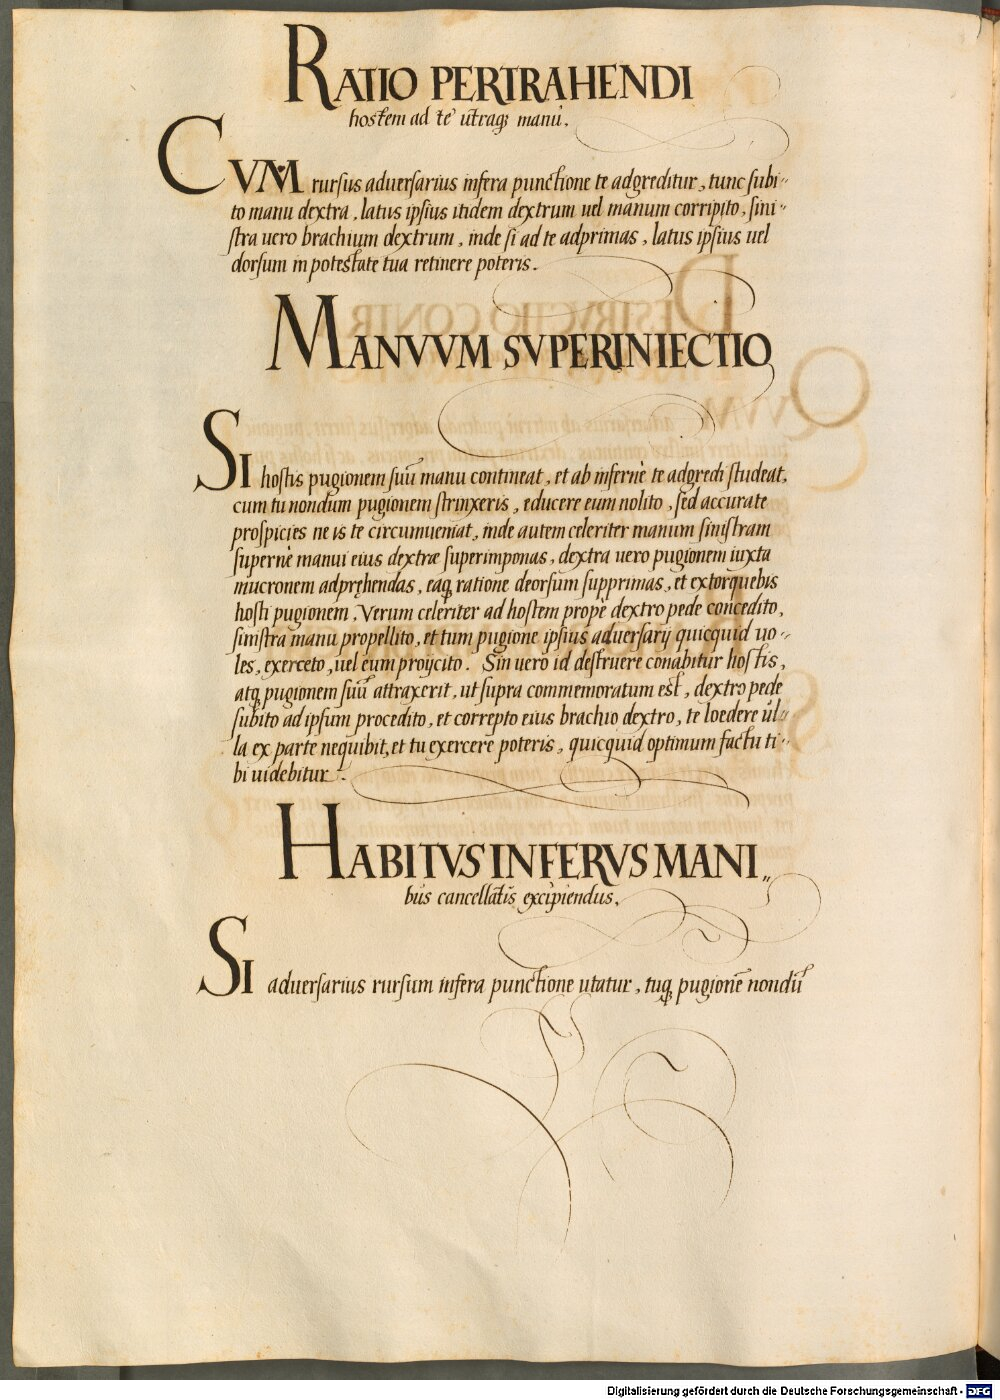 RATIO PERTRAHENDI
hostem ad te utraq; manu.
CVM rursus aduersarius infera punctione te adgreditur, tunc subi-
to manu dextra, latus ipsius itidem dextrum uel manum corripito, sini-
stra uero brachium dextrum, inde si ad te adprimas, latus ipsius uel
dorsum in potestate tua retinere poteris.
MANVVM SVPERINIECTIO
SI hostis pugionem suū manu contineat, et ab infernè te adgredi studeat,
cum tu nondum pugionem strinxeris, educere eum nolito, sed accurate
prospicies ne is te circumueniat, inde autem celeriter manum sinistram
supernè manui eius dextræ superimponas, dextra uero pugionem iuxta
mucronem adpręhendas, eaq; ratione deorsum supprimas, et extorquebis
hosti pugionem. Verum celeriter ad hostem prope dextro pede concedito,
sinistra manu propellito, et tum pugione ipsius aduersarij quicquid uo-
les, exerceto, uel eum proijcito. Sin uero id destruere conabitur hostis,
atq; pugionem suū attraxerit, ut supra commemoratum est, dextro pede
subito ad ipsum procedito, et correpto eius brachio dextro, te loedere ul-
la ex parte nequibit, et tu exercere poteris, quicquid optimum factu ti-
bi uidebitur.
HABITVS INFERVS MANI„
bus cancellatis excipiendus.
SI aduersarius rursum infera punctione utatur, tuq; pugionē nondū
Digitalisierung gefördert durch die Deutsche Forschungsgemeinschaft - DFG